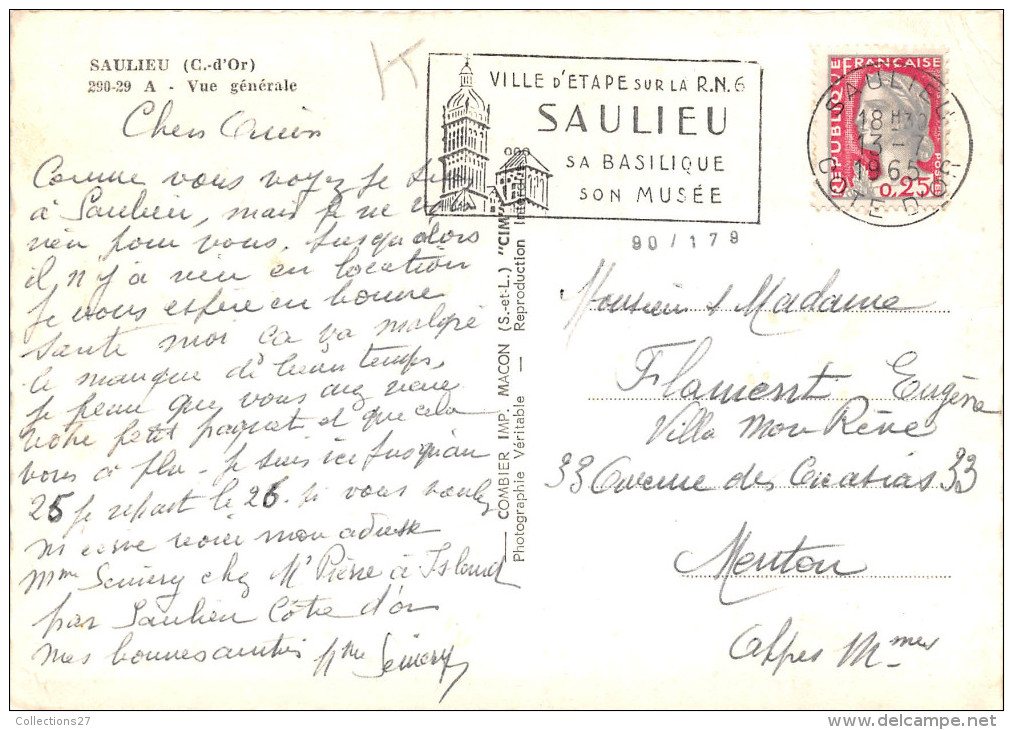 SAULIEU (C.-d'Or)
290-29 A - Vue générale
K
VILLE D'ETAPE SUR LA R.N.6
SAULIEU
SA BASILIQUE
SON MUSÉE
REPUBLIQUE FRANÇAISE
0,25
SAULIEU
18 H 30
13 - 7
1965
COTE D'OR
90/179
Chers Amis
Comme vous voyez je suis
à Saulieu, mais je ne vois
rien pour vous. Jusqu'alors
il n'y a rien en location
Je vous espère en bonne
santé moi ça va malgré
le manque de beau temps.
Je pense que vous avez reçu
votre petit paquet et que cela
vous a plu - Je suis ici jusqu'au
25 je repart le 26. si vous voulez
m'écrire voici mon adresse
Mme Semery chez Mr Pierre à Island
par Saulieu Côte d'or
Mes bonnes amitiés Mme Semery
COMBIER IMP. MACON (S.-et-L.) "CIM"
Photographie Véritable - Reproduction Interdite
Monsieur & Madame
Flament Eugène
Villa Mon Rêve
33 Avenue des Acacias 33
Menton
Alpes Mmes
Collections27
delcampe.net